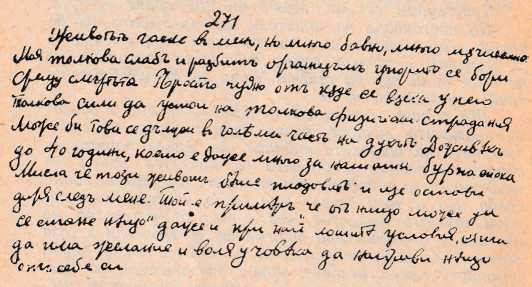 271
Животътъ гасне в мен, но много бавно, много мъчително
Моя толкова слабъ и разбитъ организъмъ упорито се бори
срещу смъртьта Просто чудно отъ кѫде се взети у него
толкова сили да устои на толкова физически страдания
Може би това се дължи в голѣма часть на духътъ Доживѣхъ
до 40 години, което е доусе много за нашата бурна епоха
Мисля че този животъ бѣше плодовитъ и ще остави
диря следъ мене. Той е примѣръ че отъ нищо може да
се стане нѣщо" дауе и при най "лошите условия, стига
да има желание и воля у човѣка да направи нѣщо
отъ себе си